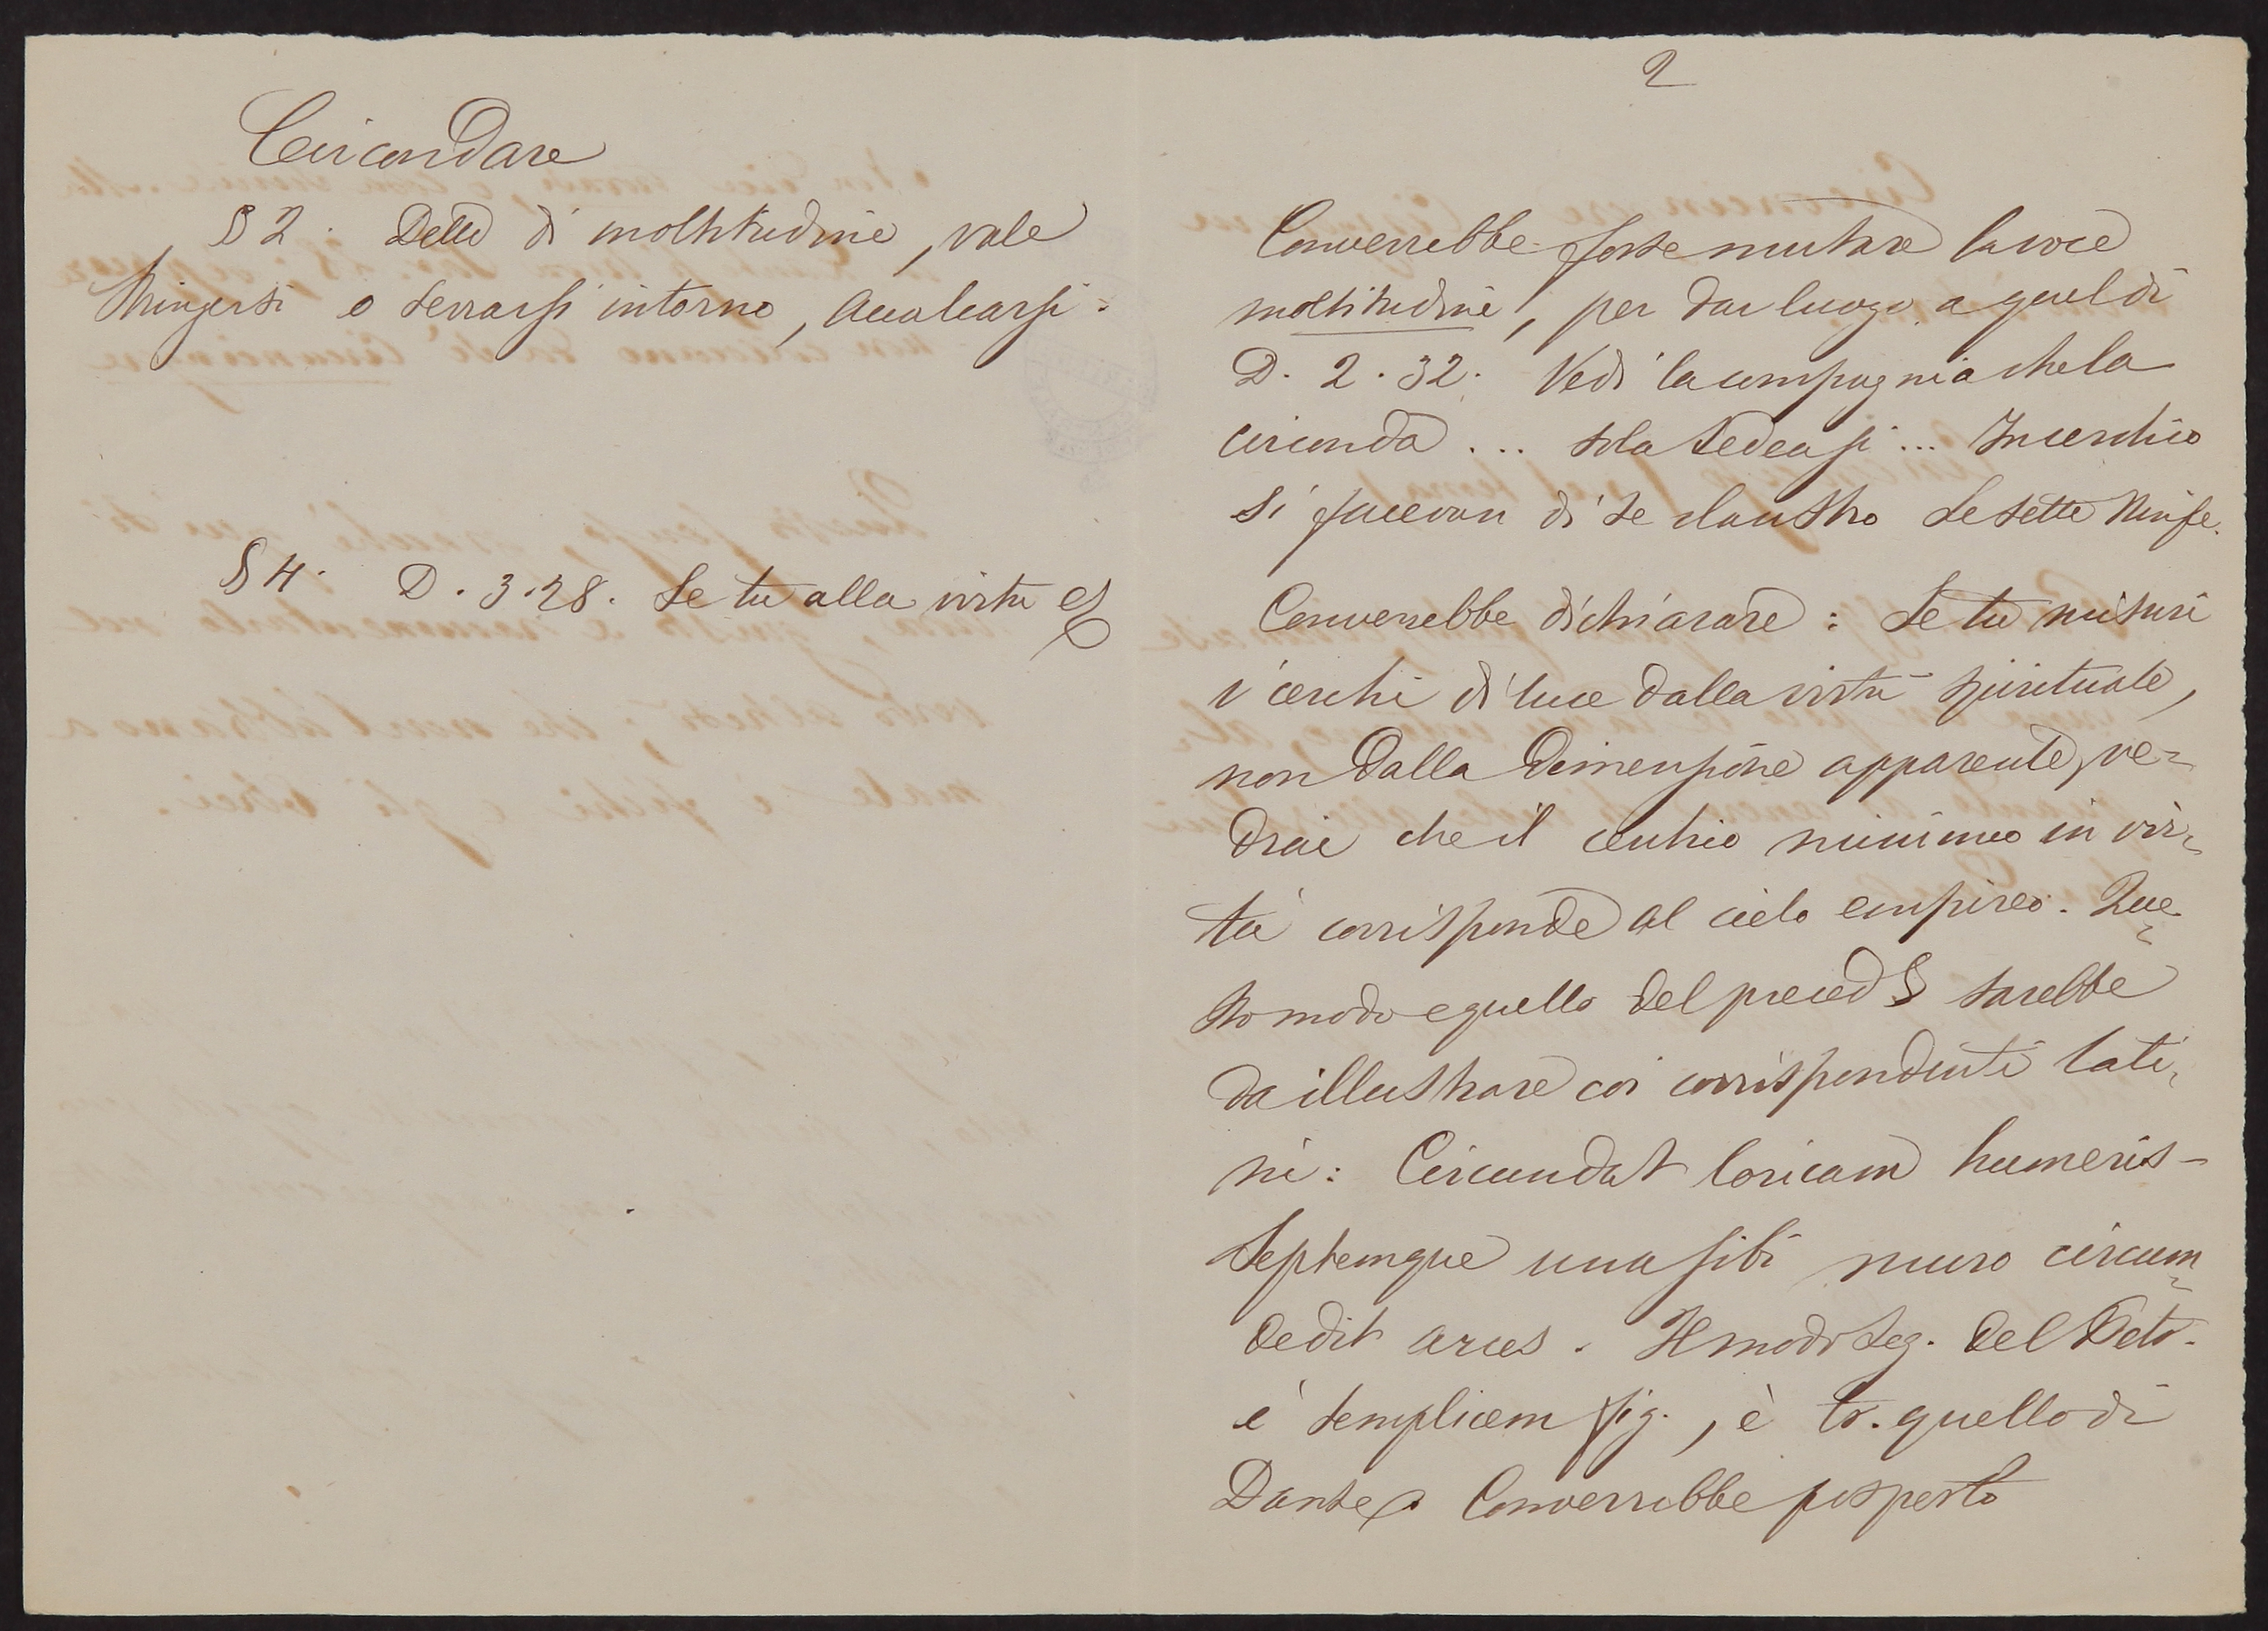 Circondare
§ 2. Detto di moltitudine, vale
Stringersi o serrarsi intorno, Accalcarsi.
§ 4. D. 3. 28. Se tu alla virtù &
2
Converrebbe forse mutare la voce
moltitudine, per dar luogo a quel di
D. 2. 32. Vedi la compagnia che la
circonda ... sola sedeasi ... In cerchio
si facevan di se claustro Le sette Ninfe.
Converrebbe dichiarare: Se tu misuri
i cerchi di luce dalla virtù spirituale,
non dalla dimensione apparente, ve=
drai che il cerchio minimo in vir=
tù corrisponde al cielo empireo. Que=
sto modo e quello del preced § sarebbe
da illustrare coi corrispondenti lati=
ni: Circundat loricam humeris -
Septemque una sibi muro circum=
dedit arces. Il modo seg. del
è semplicem fig., è tr. quello di
Dante. Converrebbe posperlo